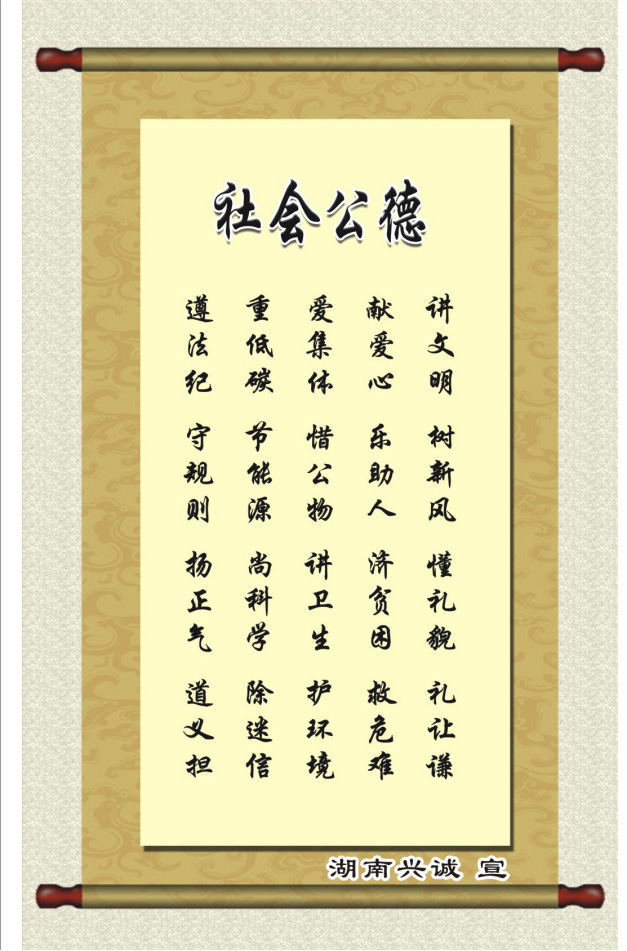 社会公德
讲文明 树新风 懂礼貌 礼让谦
献爱心 乐助人 济贫困 救危难
爱集体 惜公物 讲卫生 护环境
重低碳 节能源 尚科学 除迷信
遵法纪 守规则 扬正气 道义担
湖南兴诚 宣